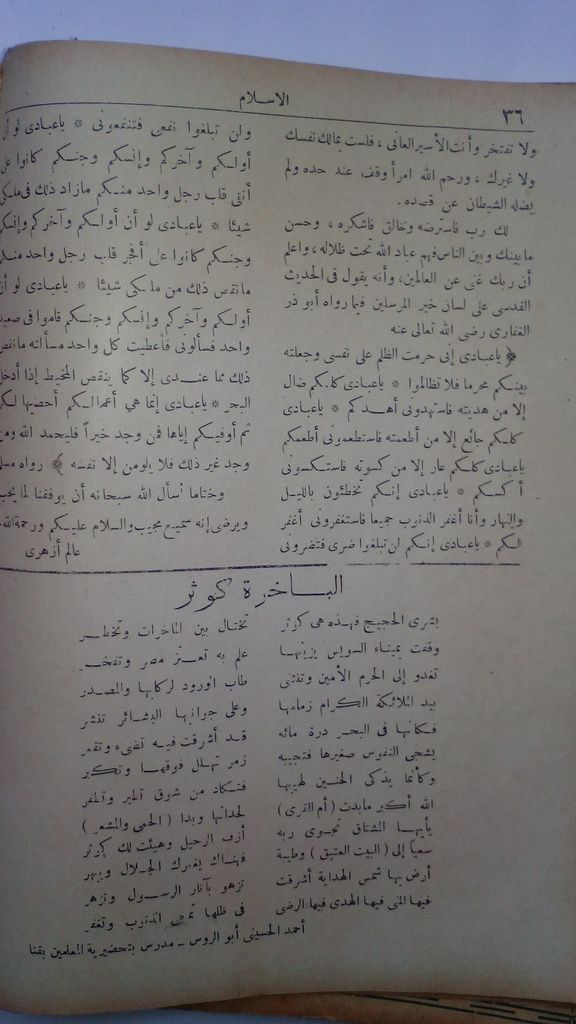 ٣٦
الاسلام
ولا تفتخر وأنت الأسير العانى ، فلست بمالك نفسك
ولا غيرك ، ورحم الله امرأ وقف عند حده ولم
يضله الشيطان عن قصده .
لك رب فاسترضه وخالق فاشكره ، وحسن
ما بينك وبين الناس فهم عباد الله تحت ظلاله ، واعلم
أن ربك غنى عن العالمين ، وأنه يقول فى الحديث
القدسى على لسان خير المرسلين فيما رواه أبو ذر
الغفارى رضى الله تعالى عنه
﴿ ياعبادى إنى حرمت الظلم على نفسى وجعلته
بينكم محرما فلا تظالموا * ياعبادى كلكم ضال
إلا من هديته فاستهدونى أهدكم * ياعبادى
كلكم جائع إلا من أطعمته فاستطعمونى أطعمكم
ياعبادى كلكم عار إلا من كسوته فاستكسونى
أكسكم * ياعبادى إنكم تخطئون بالليل
والنهار وأنا أغفر الذنوب جميعا فاستغفرونى أغفر
لكم * ياعبادى إنكم لن تبلغوا ضرى فتضرونى
ولن تبلغوا نفعى فتنفعونى * ياعبادى لو أن
أولكم وآخركم وإنسكم وجنكم كانوا على
أتقى قلب رجل واحد منكم مازاد ذلك فى ملكى
شيئا * ياعبادى لو أن أولكم وآخركم وإنسكم
وجنكم كانوا على أفجر قلب رجل واحد منكم
مانقص ذلك من ملكى شيئا * ياعبادى لو أن
أولكم وآخركم وإنسكم وجنكم قاموا فى صعيد
واحد فسألونى فأعطيت كل واحد مسألته مانقص
ذلك مما عندى إلا كما ينقص المخيط إذا أدخل
البحر * ياعبادى إنما هي أعمالكم أحصيها لكم
ثم أوفيكم إياها فمن وجد خيراً فليحمد الله ومن
وجد غير ذلك فلا يلومن إلا نفسه ﴾ رواه مسلم
وختاما أسأل الله سبحانه أن يوفقنا لما يحب
ويرضى إنه سميع مجيب والسلام عليكم ورحمة الله
عالم أزهرى
الباخرة كوثر
بشرى الحجيج فهذه هى كوثر تختال بين الماخرات وتخطر
وقفت بميناء السويس يزينها علم به تعتز مصر وتفخر
تغدو إلى الحرم الأمين وتنثنى طاب الورود لركابها والمصدر
بيد الملائكة الكرام زمامها وعلى جوانبها البشائر تنشر
فكأنها فى البحر درة مائه قد أشرقت فيه تضىء وتقمر
يشجى النفوس صفيرها فتجيبه زمر تهلل فوقها وتكبر
وكأنما يذكى الحنين لهيبها فتكاد من شوق تطير وتطفر
الله أكبر مابدت ( أم القرى ) لحداتها وبدا ( الحمى والمشعر )
يأيها المشتاق نجوى ربه أزف الرحيل وهيئت لك كوثر
سعياً إلى ( البيت العتيق ) وطيبة فهناك يغمرك الجلال ويبهر
أرض بها شمس الهداية أشرقت تزهو بآثار الرسول وتزهر
فيها المنى فيها الهدى فيها الرضى فى ظلها تمحى الذنوب وتغفر
أحمد الحسينى أبو الروس - مدرس بتحضيرية المعلمين بقنا